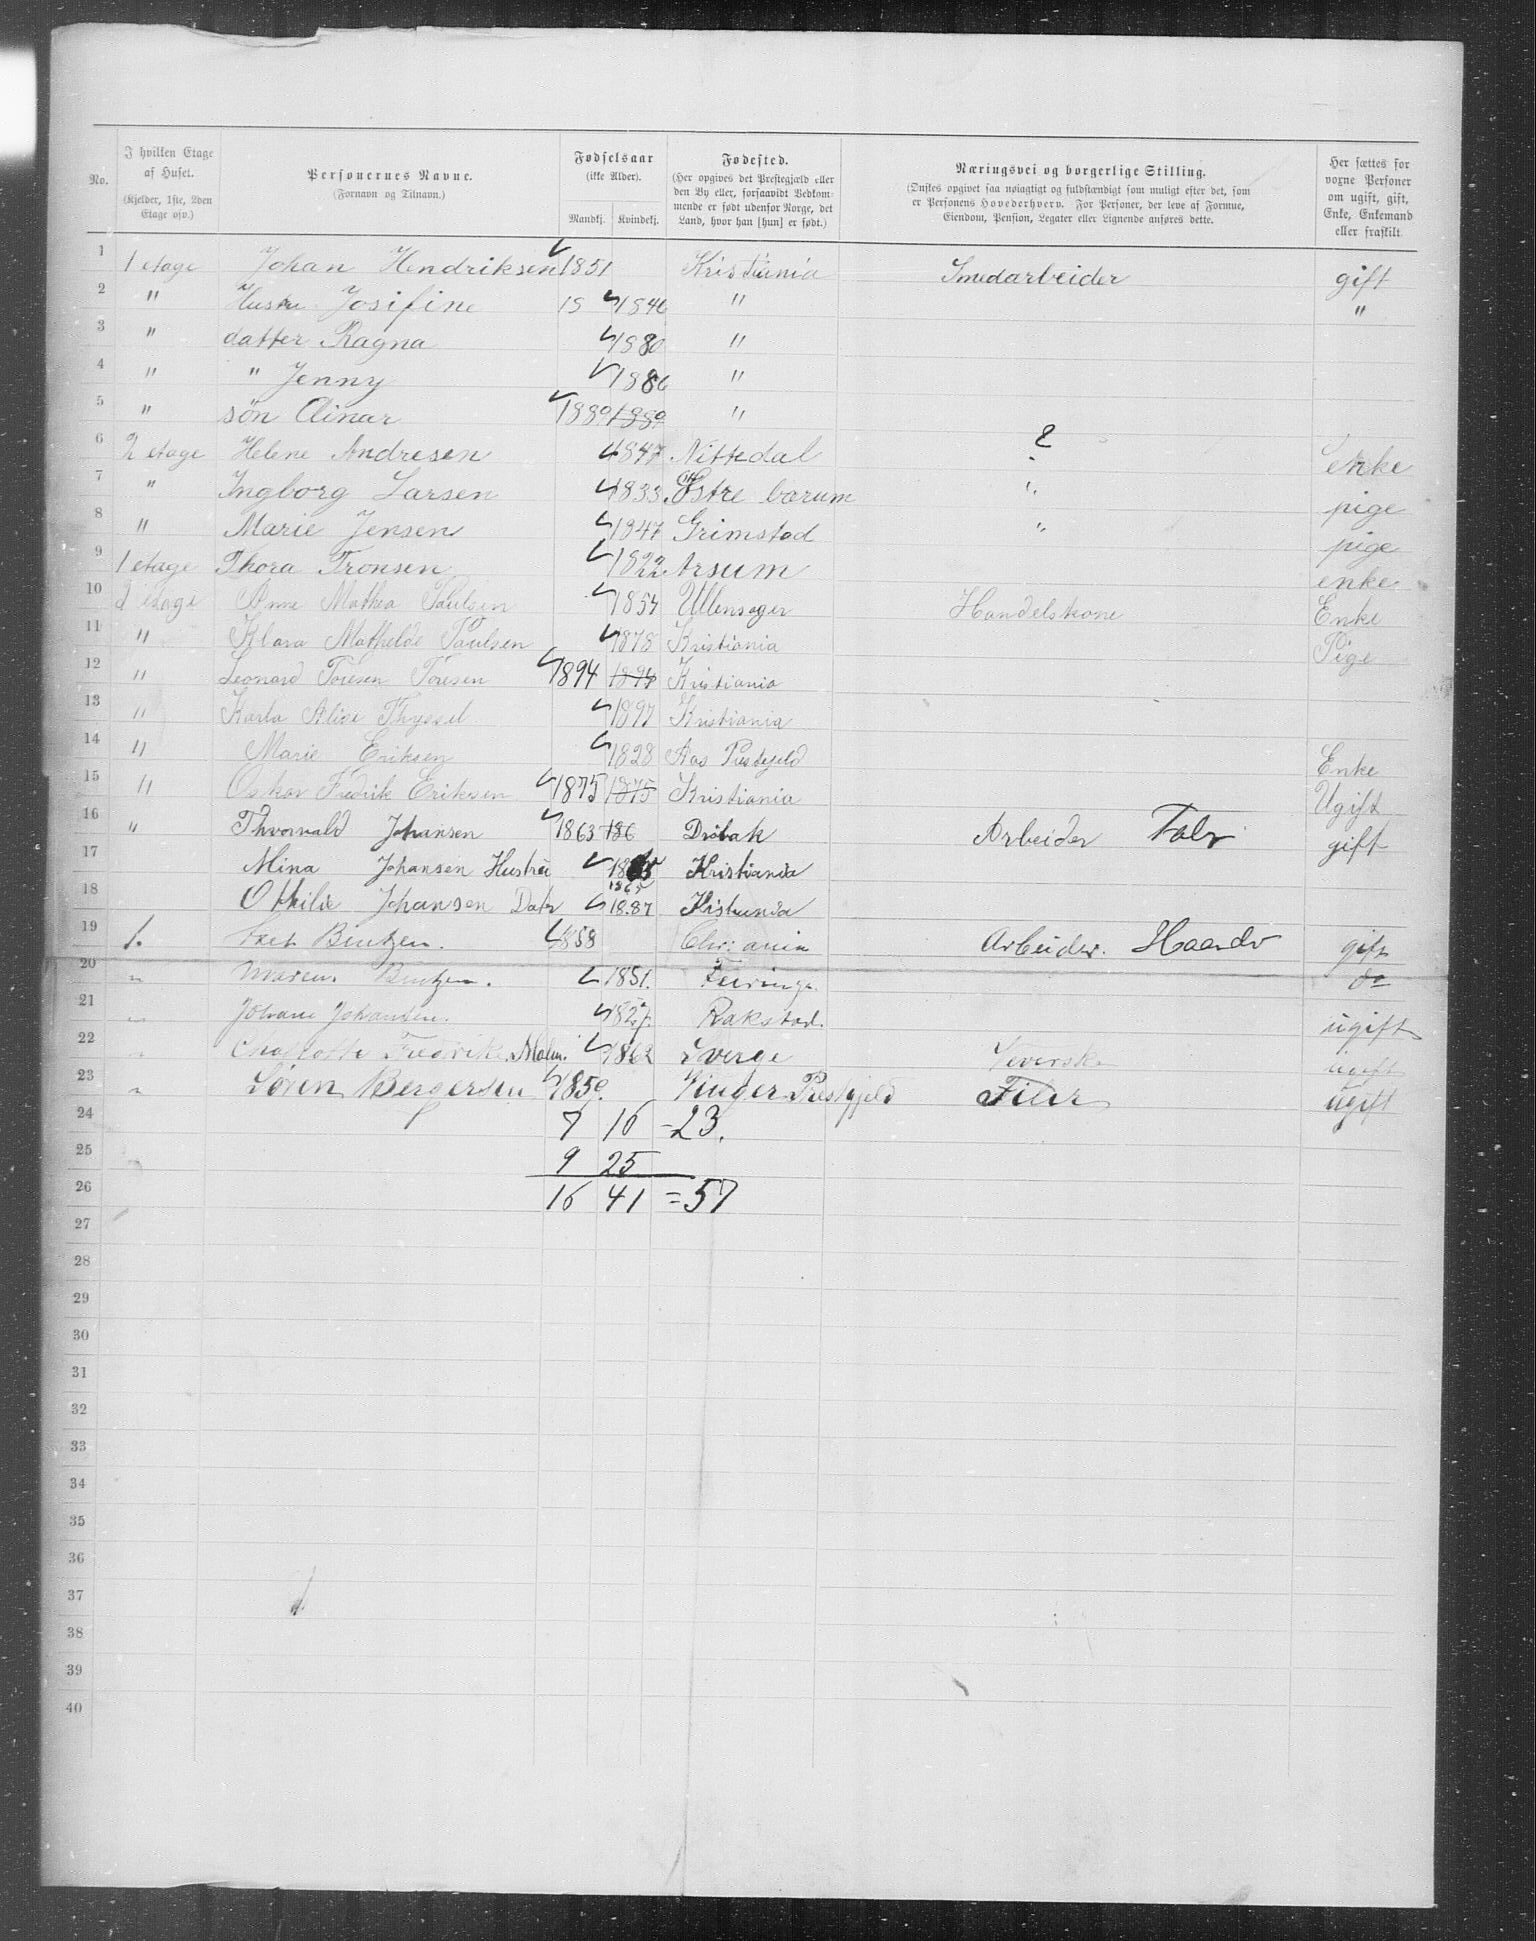 No.
I hvilken Etage af Huset. (Kjelder, 1ste, 2den Etage osv.)
Personernes Navne. (Fornavn og Tilnavn.)
Fødselsaar (ikke Alder). Mandkj. Kvindekj.
Fødested. (Her opgives det Prestegjæld eller den By eller, forsaavidt Vedkommende er født udenfor Norge, det Land, hvor han [hun] er født.)
Næringsvei og borgerlige Stilling. (Ønskes opgivet saa nøiagtigt og fuldstændigt som muligt efter det, som er Personens Hovederhverv. For Personer, der leve af Formue, Eiendom, Pension, Legater eller Lignende anføres dette.
Her sættes for voxne Personer om ugift, gift, Enke, Enkemand eller fraskilt.
1 1 etage Johan Hendriksen 1851 Kristiania Smedarbeider gift
2 " Hustru Josifine 18 1846 " "
3 " datter Ragna 1880 "
4 " " Jenny 1886 "
5 " søn Einar 1889 1889 "
6 2 etage Helene Andresen 1847 Nittedal ? enke
7 " Ingborg Larsen 1833 Østre bærum " pige
8 " Marie Jensen 1847 Grimstad " pige
9 1 etage Thora Tronsen 1822 enke
10 2 etage Ane Mathea Paulsen 1854 Ullensager Handelskone Enke
11 " Klara Mathilde Paulsen 1878 Kristiania Pige
12 " Leonard Toresen Toresen 1894 1894 Kristiania
13 " Karla Alise Thyssel 1897 Kristiania
14 " Marie Eriksen 1828 Aas Prestegjeld Enke
15 " Oskar Fredrik Eriksen 1875 1875 Kristiania Ugift
16 " Thorvald Johansen 1863 186 Drøbak Arbeider Fabr gift
17 Mina Johansen Hustru 1865 Kristiania
18 Othilie Johansen Datr 1887 Kristiania
19 1. Bentzen. 1858 Chr:ania Arbeider. Haandv gift
20 " Maren Bentzen. 1851. Feiringe. do
21 " Johane Johansen. 1827. Rakstad. ugift
22 " Charlotte Fredrike Malm. 1862 Sverge Veverske ugift
23 " Søren Bergersen 1850. Vinger Prestegjeld Filer ugift
24 7 16 - 23.
25 9 25
26 16 41 = 57
27
28
29
30
31
32
33
34
35
36
37
38
39
40